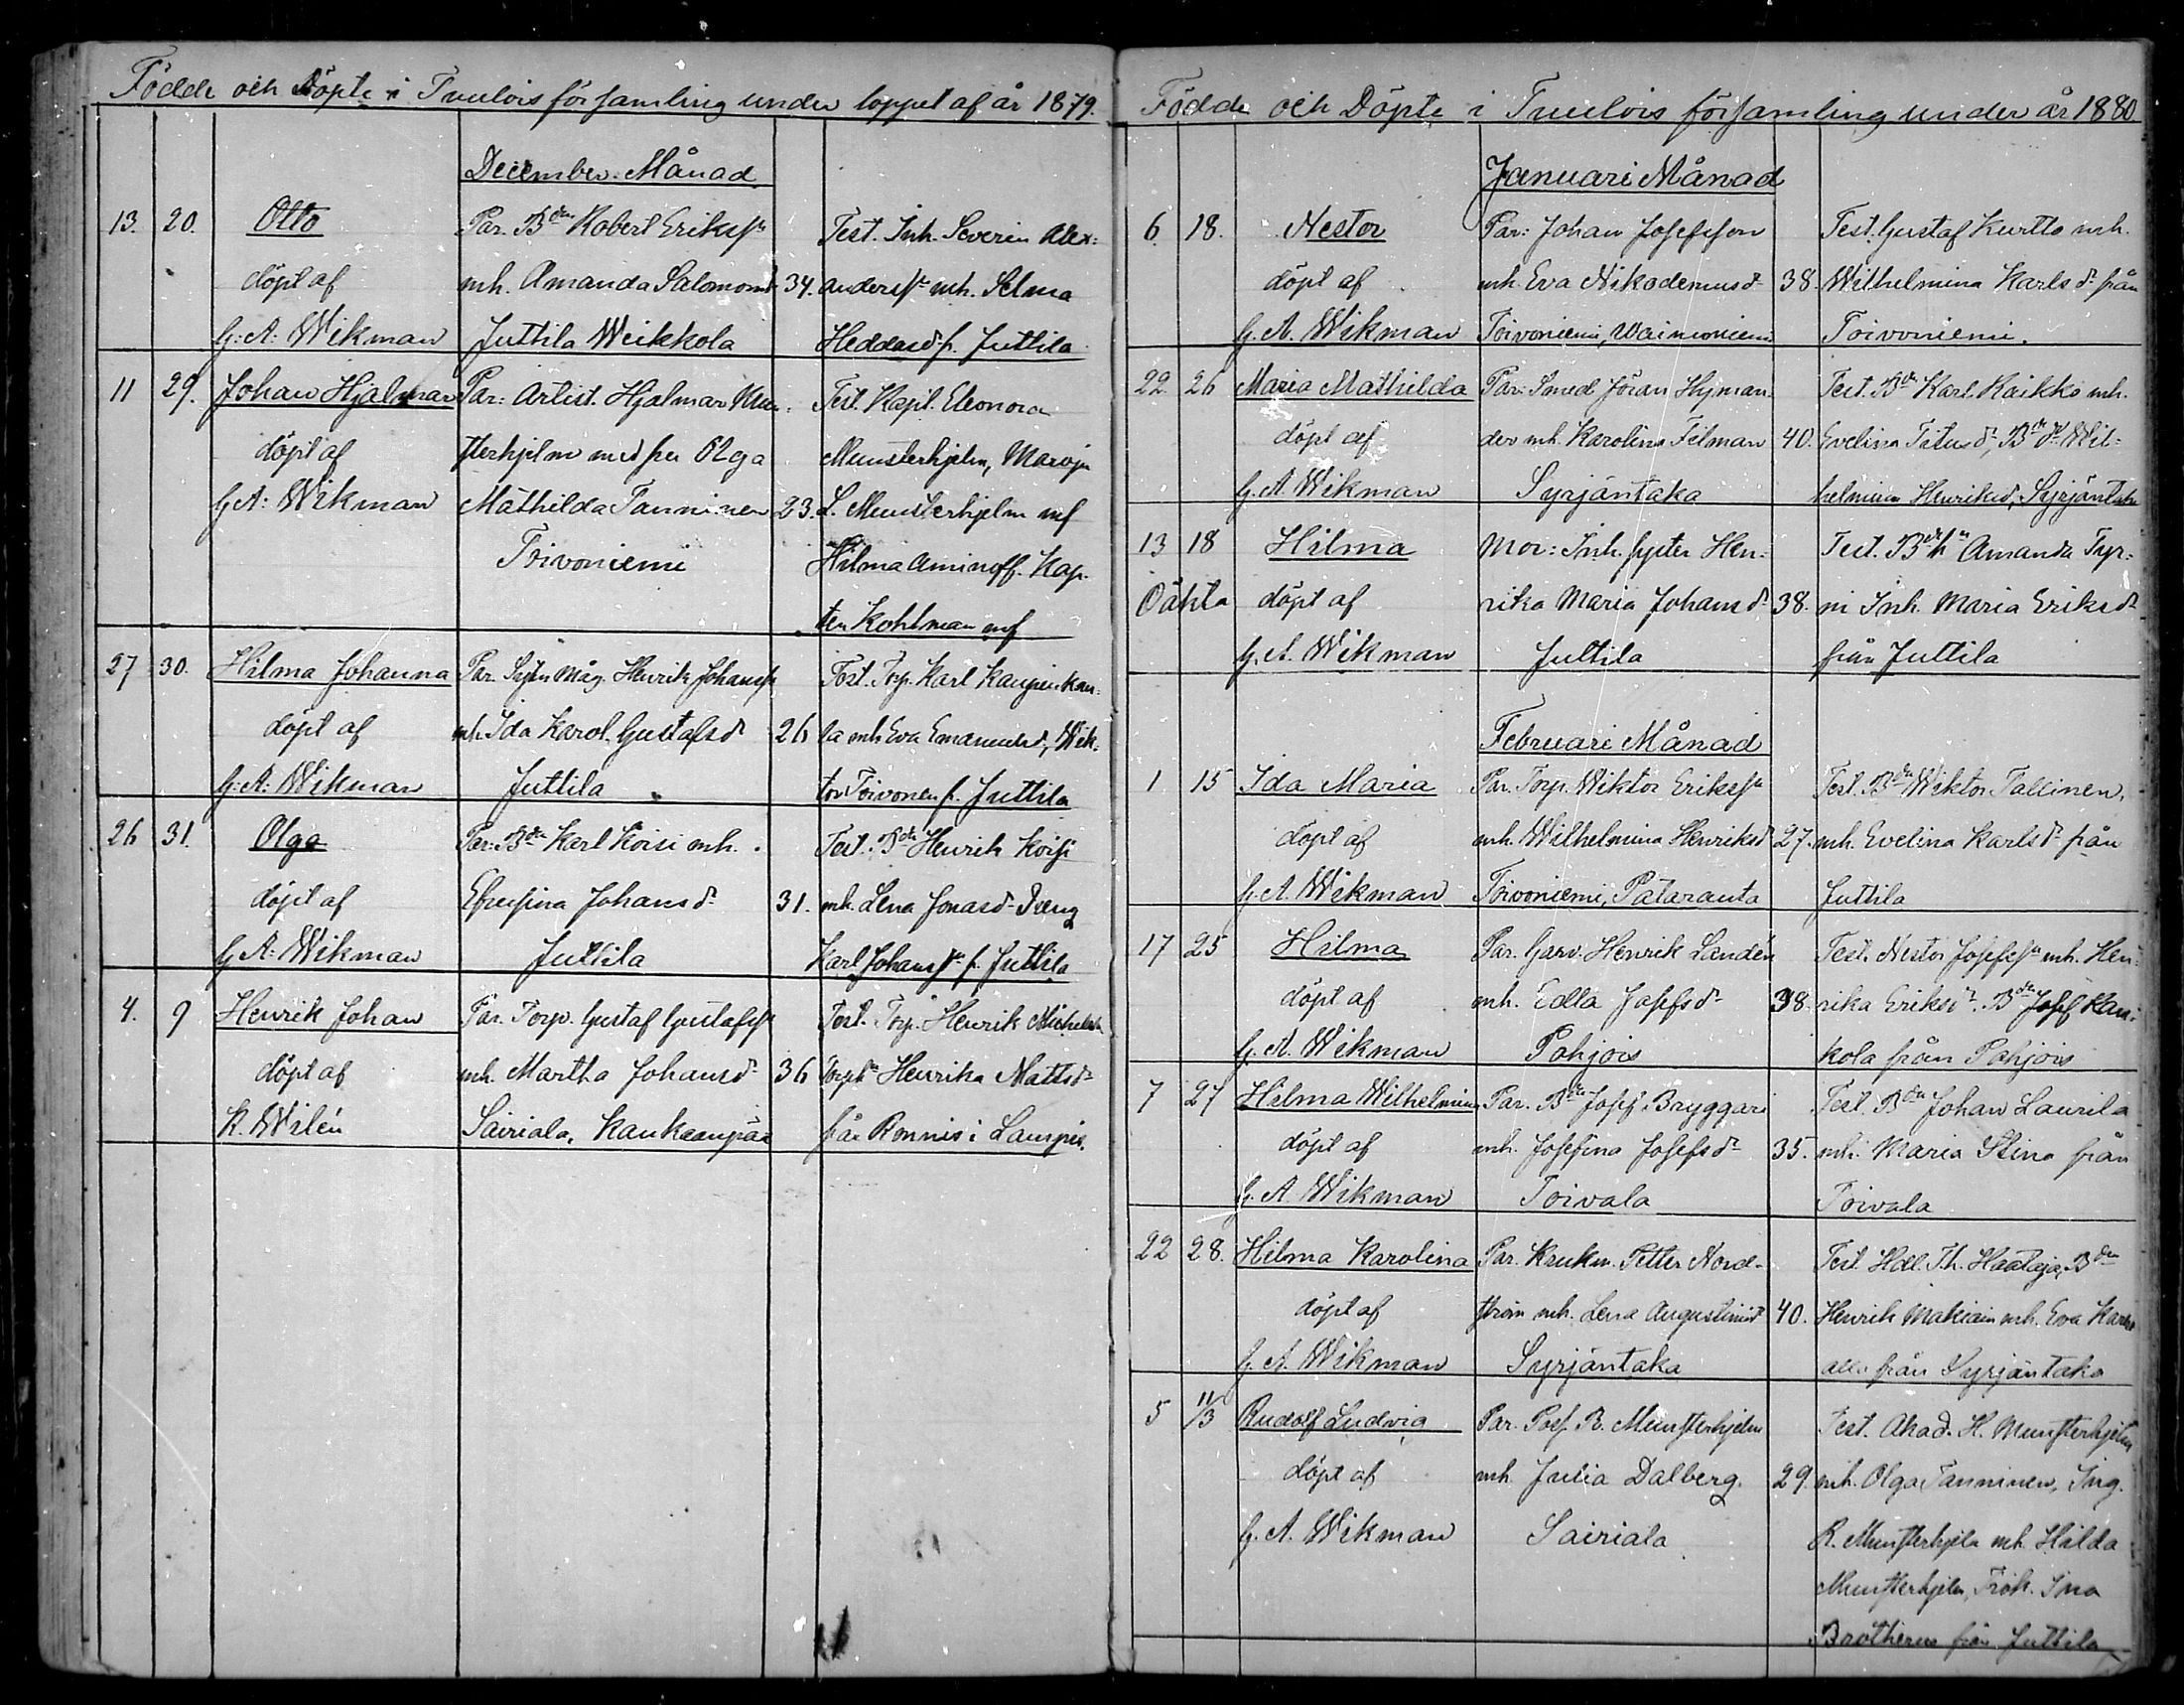 Födde och Döpte i Tuulois församling under loppet af år 1879.
December Månad
13. 20. Otto Par. Bdn Robert Erikss:n Test. Inh. Severin Alex-
döpt af mh. Amanda Salomonsd 34. anderss:n mh. Selma
G: A: Wikman Juttila Weikkola Heddasd fr. Juttila
11 29. Johan Hjalmar Par: Artist. Hjalmar Mun- Test. Kapt. Eleonora
döpt af sterhjelm med fru Olga Munsterhjelm,
G A: Wikman Mathilda Tanninen 23. L. Munsterhjelm mf
Toivoniemi Hilma Aminoff. Kap-
ten Kohlman mf
27 30. Hilma Johanna Par. Måg. Henrik Johanss Test. Torp. Karl
döpt af mh. Ida Karol. Gustafsd 26 la mh Eva Emanuelsd, Wik-
G: A: Wikman Juttila tor Toivonen fr. Juttila
26 31. Olga Par: Bdn Karl Köisi mh. Test. Bdn Henrik Köisi
döpt af Efrusina Johansd 31. mh. Lena Jonasd Dreng
G A: Wikman Juttila Karl Johanss:n fr. Juttila
4. 9 Henrik Johan Par. Torp. Gustaf Gustafss Test. Torp. Henrik Michelss
döpt af mh. Martha Johansd 36 Henrika Mattsd
K. Wilén Sairiala, Kaukaanpää från Ronnis i Lampis.
Födde och Döpte i Tuulois församling under år 1880
Januari Månad
6. 18. Nestor Par: Johan Josefsson Test. Gustaf Kurtto mh.
döpt af mh. Eva Nikodemusd 38. Wilhelmina Karlsd från
G. A. Wikman Toivoniemi, Wainioniemi Toivoniemi.
22. 26 Maria Mathilda Par: Smed Jöran Hyman- Test. Bdn Karl Kaikko mh.
döpt af der mh. Karolina Filman 40. Evelina Titusd, Wil-
G. A. Wikman Syrjäntaka helmina Henriksd, Syrjäntaka
13 18 Hilma Mor: Inh. syster Hen- Test. Amanda Tyr-
Oäkta döpt af rika Maria Johansd 38. ni Inh. Maria Eriksd
G. A. Wikman Juttila från Juttila
Februari Månad
1. 15 Ida Maria Par. Torp. Wiktor Erikss:n Test. Bdn Wiktor Tallinen,
döpt af mh. Wilhelmina Henriksd 27. mh. Evelina Karlsd från
G. A. Wikman Toivoniemi, Pataranta Juttila
17 25 Hilma Par. Garv. Henrik Landén Test. Nestor Josefss:n mh. Hen-
döpt af mh. Edla Josefsd 38. rika Eriksd. Bdn Josef Kan-
G. A. Wikman Pohjois kola från Pohjois
7 27 Hilma Wilhelmina Par. Bdn Josef Bryggari Test. Bdn Johan Laurila
döpt af mh. Josefina Josefsd 35. mh. Maria Stina från
G. A. Wikman Toivala Toivala
22 28. Hilma Karolina Par. Krukm. Petter Nord- Test. Hdl. Th. Haataja, Bdn
döpt af ström mh. Lena Augustinsd 40. Henrik mh. Eva
G. A. Wikman Syrjäntaka alla från Syrjäntaka
5 11/3 Rudolf Ludvig Par. Poss. R. Munsterhjelm Test. Akad. H. Munsterhjelm
döpt af mh. Julia Dalberg. 29. mh. Olga Tanninen, Ing.
G. A. Wikman Sairiala R. Munsterhjelm mh. Hilda
Munsterhjelm, Frök. Ina
Brotherus från Juttila